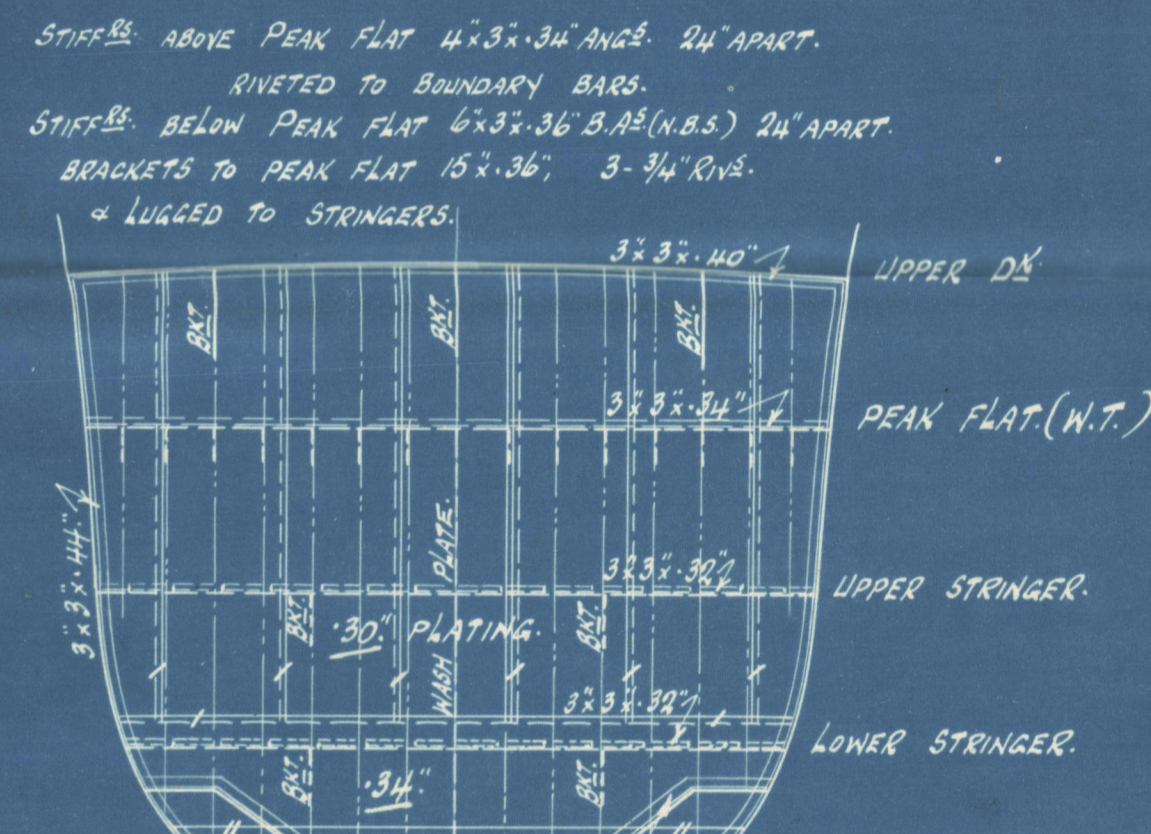 STIFFRS. ABOVE PEAK FLAT 4"x3"x.34" ANGS. 24" APART.
RIVETED TO BOUNDARY BARS.
STIFFRS. BELOW PEAK FLAT 6"x3"x.36" B.AS.(N.B.S.) 24" APART.
BRACKETS TO PEAK FLAT 15"x.36", 3-3/4" RIVS.
& LUGGED TO STRINGERS.
3"x3"x.40"
UPPER DK.
BKT.
BKT.
BKT.
3"x3"x.34"
PEAK FLAT.(W.T.)
3"x3"x.44"
WASH PLATE.
3"x3"x.32"
UPPER STRINGER.
BKT.
.30" PLATING.
BKT.
3"x3"x.32"
LOWER STRINGER.
BKT.
.34"
BKT.